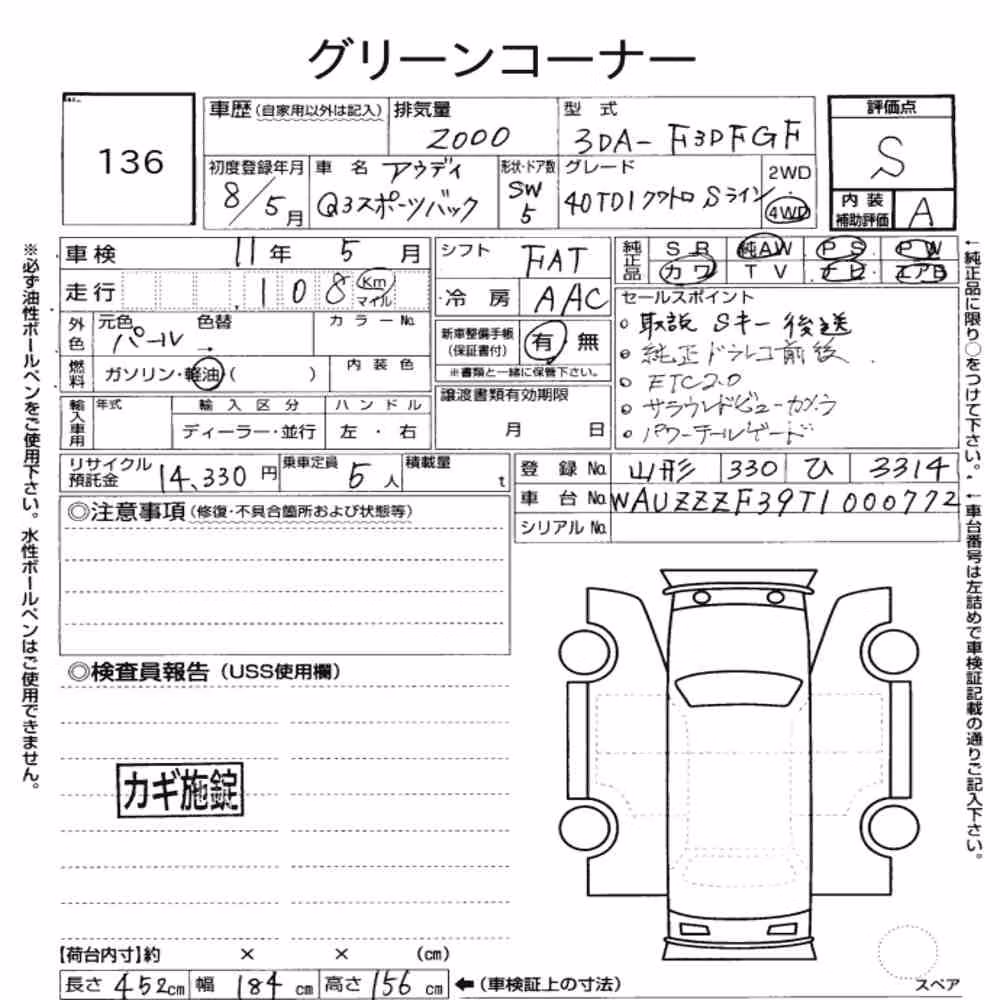 グリーンコーナー
136
車歴 (自家用以外は記入) 排気量 2000 型式 3DA-F3DFGF
評価点 S
初度登録年月 8/5月 車名 アウディ Q3スポーツバック 形状・ドア数 SW 5 グレード 40TDIクワトロ Sライン 2WD 4WD
内装補助評価 A
車検 11年 5月 シフト FAT 純正品 SR 純AW PS PW
走行 108 Km マイル 冷房 AAC カワ TV ナビ エアB
外色 元色 パール 色替 カラーNo.
新車整備手帳 (保証書付) 有 無
※書類と一緒に保管下さい。
燃料 ガソリン・軽油( ) 内装色
輸入車用 年式 輸入区分 ディーラー・並行 ハンドル 左・右
譲渡書類有効期限 月 日
セールスポイント
○ 取説 Sキー 後送
○ 純正ドラレコ前後
○ ETC2.0
○ サラウンドビューカメラ
○ パワーテールゲード
リサイクル預託金 14,330円 乗車定員 5人 積載量 t
登録No. 山形 330 ひ 3314
車台No. WAUZZZF39T1000772
シリアルNo.
◎注意事項(修復・不具合箇所および状態等)
◎検査員報告(USS使用欄)
カギ施錠
【荷台内寸】約 × × (cm)
長さ 452cm 幅 184cm 高さ 156cm ←(車検証上の寸法)
スペア
※必ず油性ボールペンをご使用下さい。水性ボールペンはご使用できません。
←純正品に限り○をつけて下さい。
←車台番号は左詰めで車検証記載の通りご記入下さい。